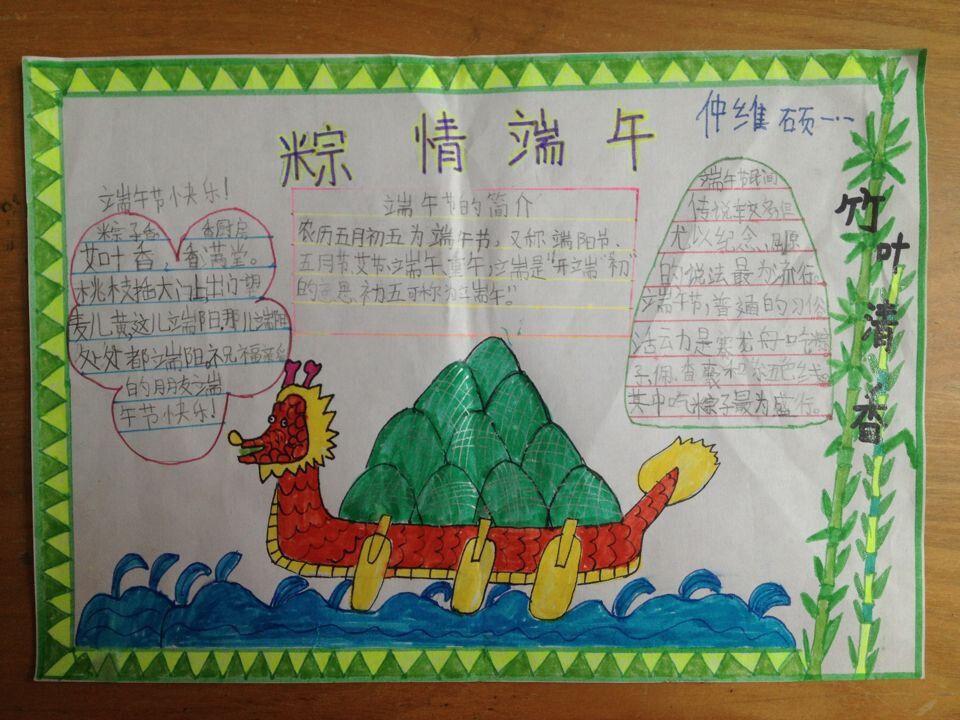 粽情端午
仲维硕一·一
端午节快乐!
粽子香 香厨房
艾叶香,香满堂。
桃枝插大门上,出门望
麦儿黄,这儿端阳,那儿端阳
处处都端阳,祝福
的月月友端
午节快乐!
端午节的简介
农历五月初五为端午节,又称端阳节、
五月节、艾节、端午、重午,端是“开端”“初”
的意思,初五可称为端午。”
端午节民间
传说较多,但
尤以纪念屈原
的说法最为流行。
端午节,普通的习俗
活动是赛龙舟吃粽
子,佩香囊和彩色线。
其中吃粽子最为盛行。
竹叶清香